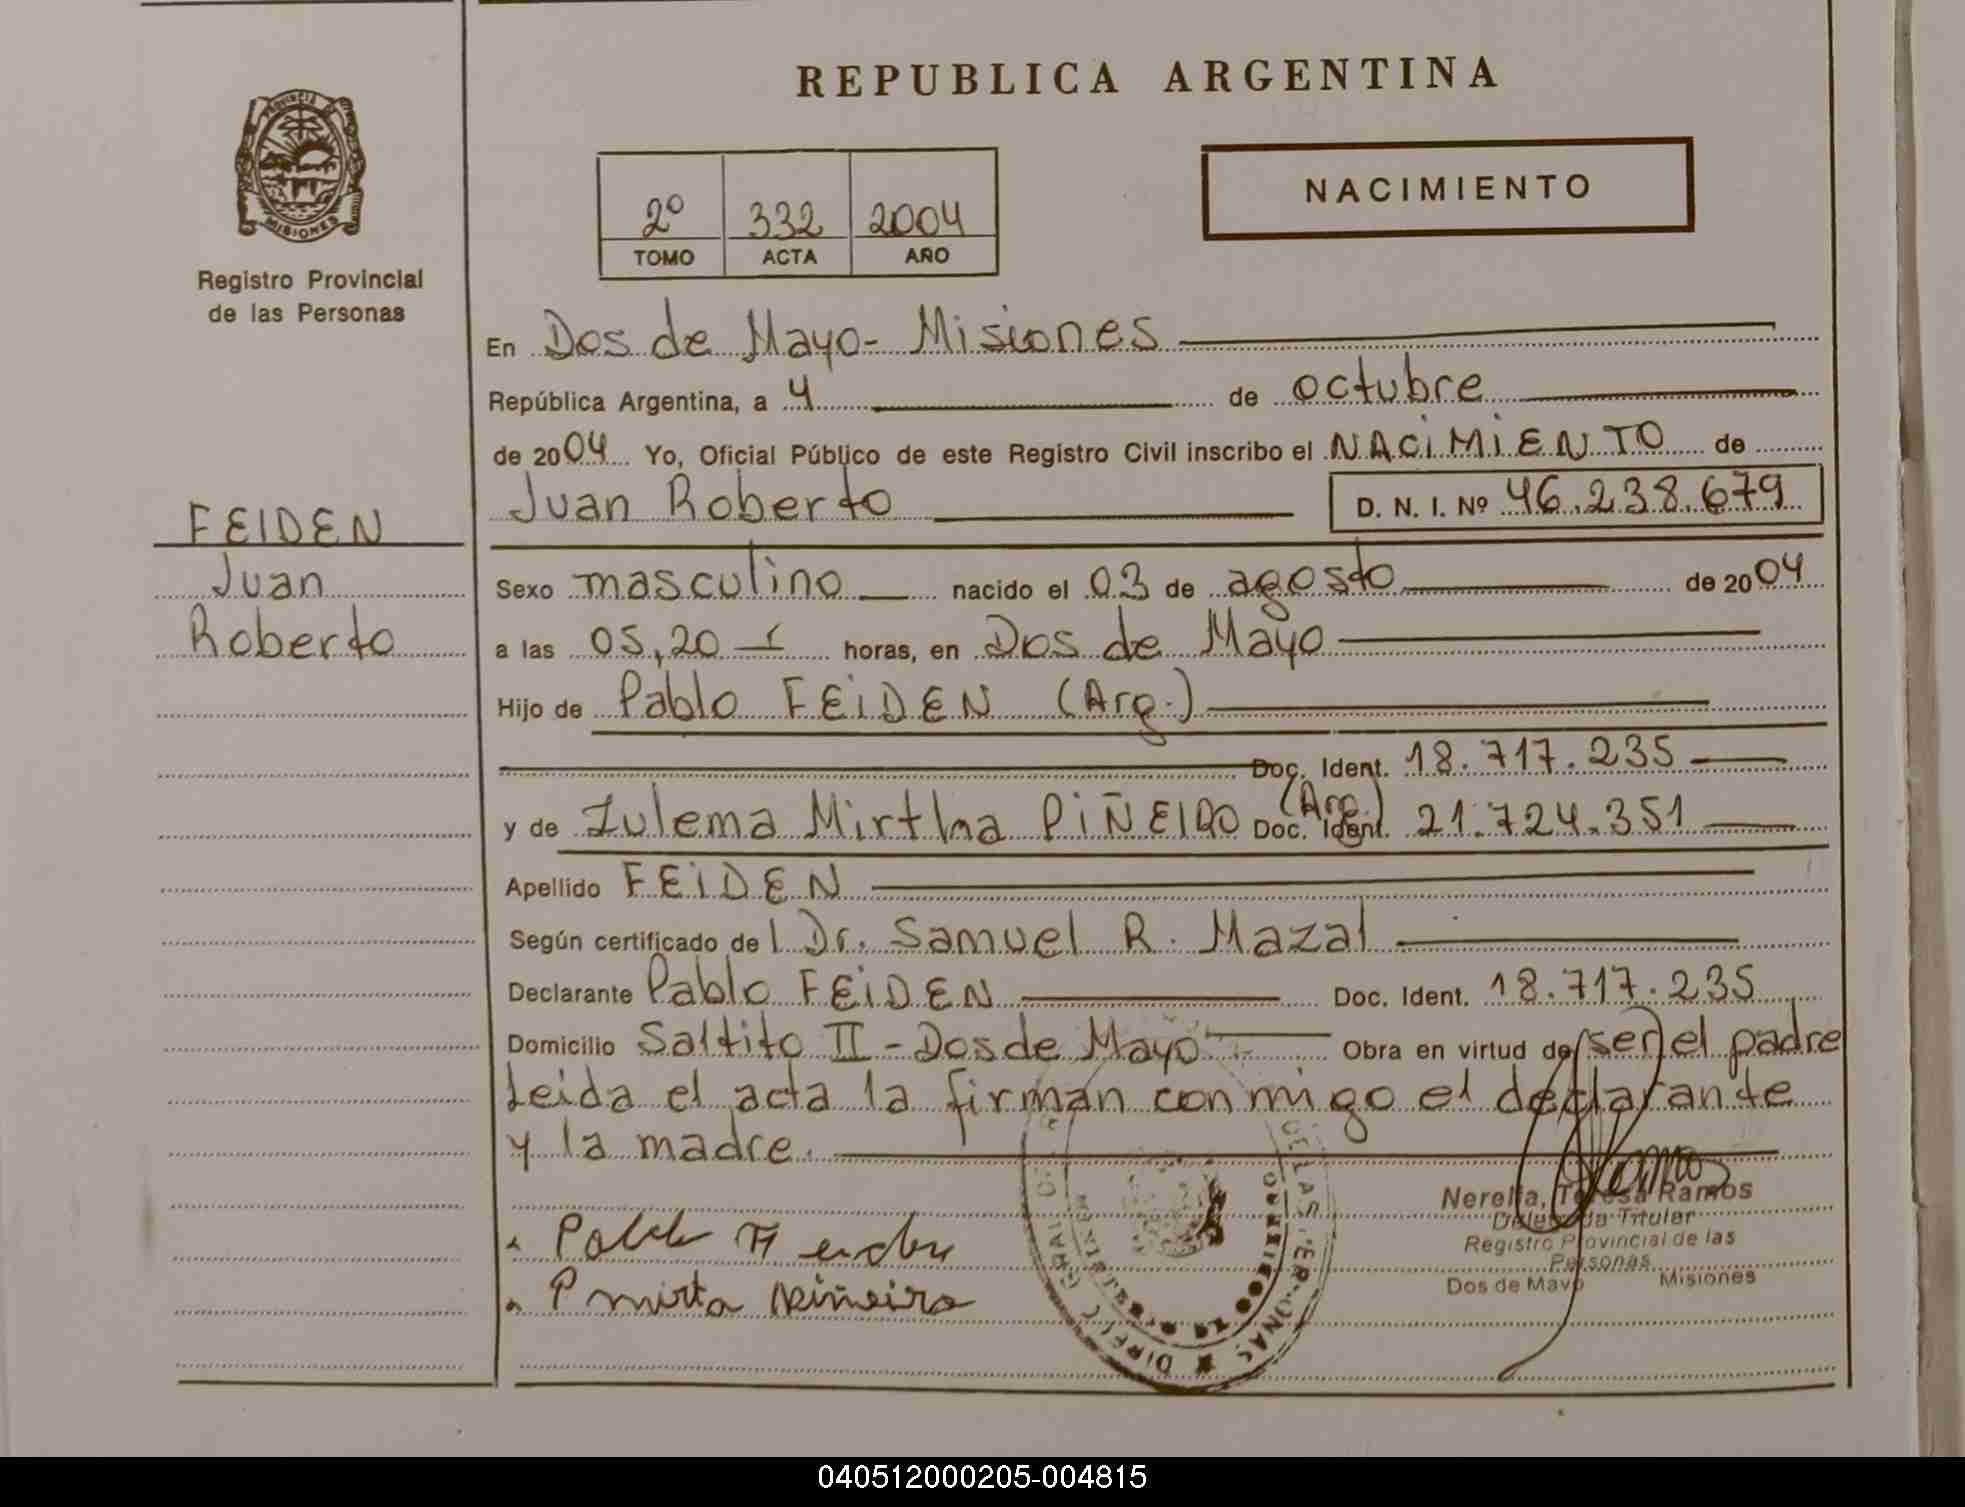 REPUBLICA ARGENTINA
PROVINCIA DE
MISIONES
Registro Provincial
de las Personas
2º 332 2004
TOMO ACTA AÑO
NACIMIENTO
En Dos de Mayo - Misiones
República Argentina, a 4 de octubre
de 2004 Yo, Oficial Público de este Registro Civil inscribo el NACIMIENTO de
Juan Roberto D. N. I. Nº 46.238.679
FEIDEN
Juan
Roberto
Sexo masculino nacido el 03 de agosto de 2004
a las 05,20 horas, en Dos de Mayo
Hijo de Pablo FEIDEN (Arg.)
Doc. Ident. 18.717.235
y de Zulema Mirtha PIÑEIRO (Arg.) Doc. Ident. 21.724.351
Apellido FEIDEN
Según certificado del Dr. Samuel R. Mazal
Declarante Pablo FEIDEN Doc. Ident. 18.717.235
Domicilio Saltito II - Dos de Mayo Obra en virtud de ser el padre
Leida el acta la firman conmigo el declarante
y la madre.
Nerella, Teresa Ramos
Delegada Titular
Registro Provincial de las
Personas
Dos de Mayo Misiones
Mirta Piñeiro
040512000205-004815